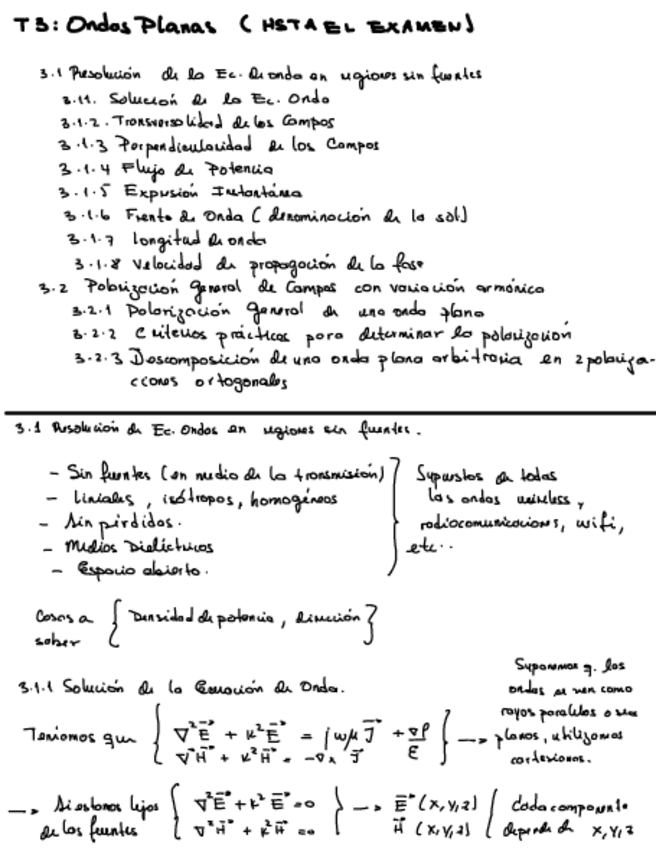 T3: Ondas Planas (HSTA EL EXAMEN)
3.1 Resolución de la Ec. de onda en regiones sin fuentes
3.11. Solución de la Ec. Onda
3.1.2. Transversalidad de los Campos
3.1.3 Perpendicularidad de los Campos
3.1.4 Flujo de Potencia
3.1.5 Expresión Instantánea
3.1.6 Frente de Onda (denominación de la sol)
3.1.7 longitud de onda
3.1.8 Velocidad de propagación de la fase
3.2 Polarización General de Campos con variación armónica
3.2.1 Polarización General de una onda plana
3.2.2 Criterios prácticos para determinar la polarización
3.2.3 Descomposición de una onda plana arbitraria en 2 polariza-
ciones ortogonales
3.1 Resolución de Ec. Ondas en regiones sin fuentes.
- Sin fuentes (en medio de la transmisión)
- Liniales, isótropos, homogéneos
- Sin pérdidas.
- Medios Dieléctricos
- Espacio abierto.
Supuestos de todas
las ondas wireless,
radiocomunicaciones, wifi,
etc..
Cosas a
saber { Densidad de potencia, dirección }
3.1.1 Solución de la Ecuación de Onda.
Suponemos q. las
ondas se ven como
rayos paralelos o sea
planos, utilizamos
cartesianas.
Teníamos que { ∇²E⃗ + k²E⃗ = jωμ J⃗ + ∇ρ/ε } →
∇²H⃗ + k²H⃗ = -∇x J⃗
→ Si estamos lejos { ∇²E⃗ + k² E⃗ = 0 } → E⃗ (x, y, z) / Cada componente
de las fuentes ∇²H⃗ + k²H⃗ = 0 H⃗ (x, y, z) depende de x, y, z